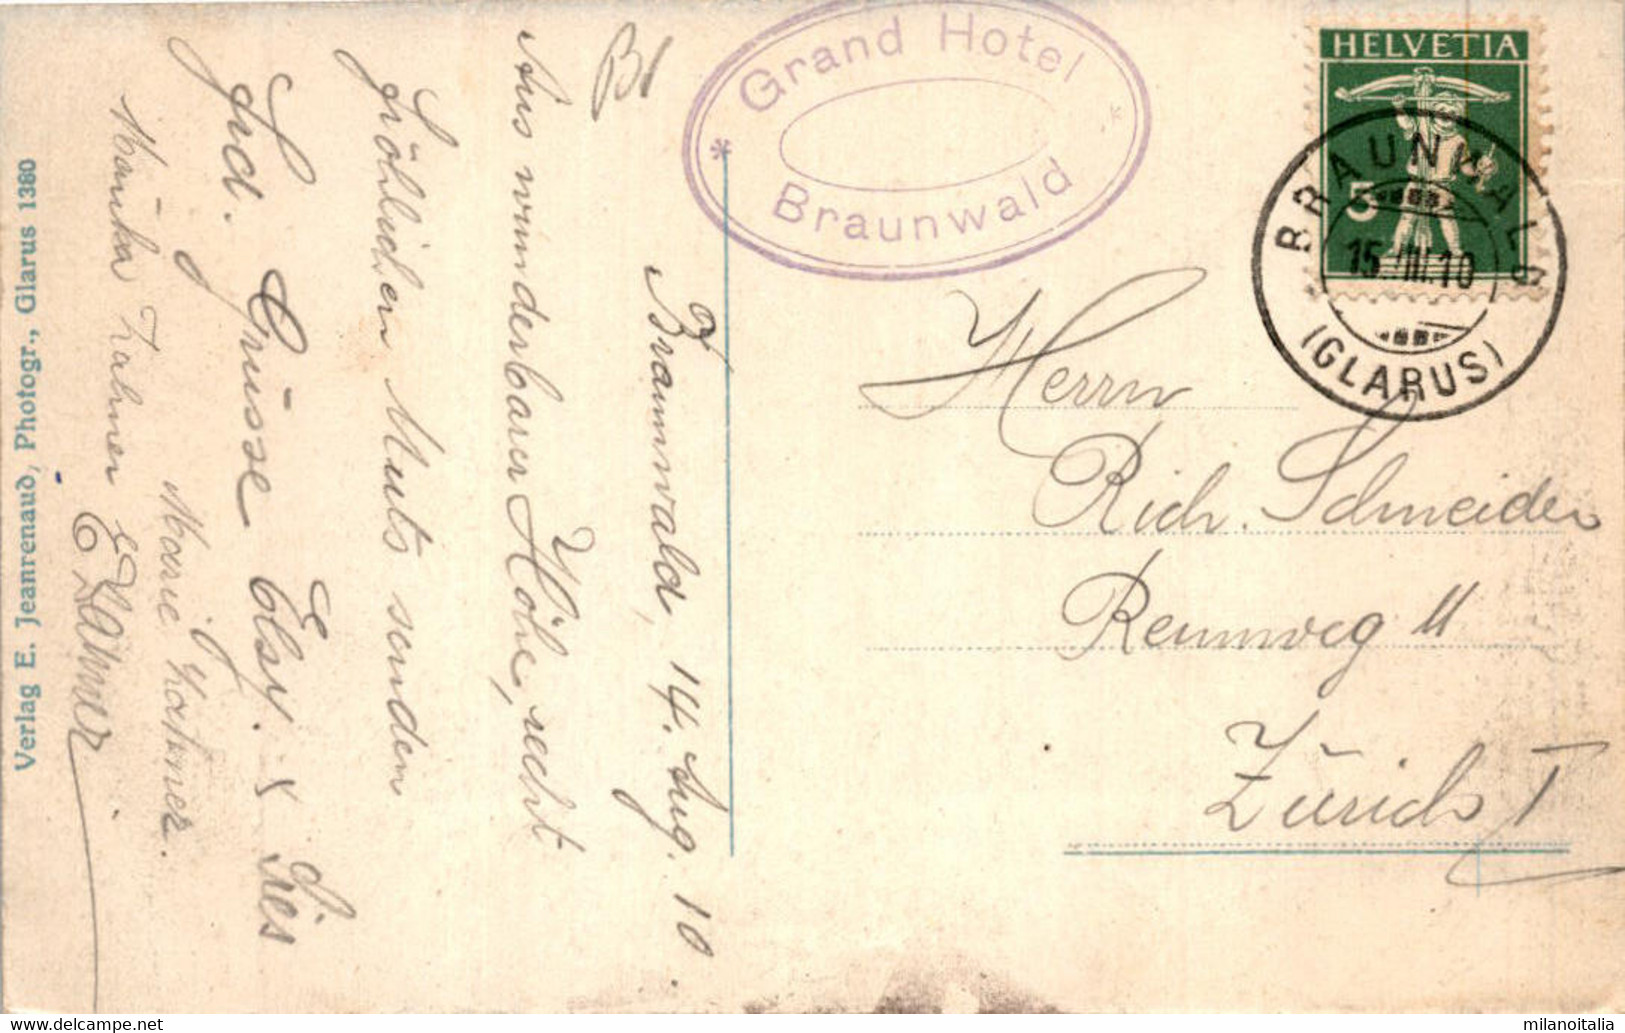 Grand Hotel
Braunwald
HELVETIA
5
BRAUNWALD
15.VIII.10
(GLARUS)
Braunwald, 14. Aug. 10.
Aus wunderbarer Höhe, recht
fröhlichen Muts senden
Grüsse Elsy. &
Marie
Herrn
Rich. Schneider
Rennweg 11
Zürich I
Verlag E. Jeanrenaud, Photogr., Glarus 1380
milanoitalia